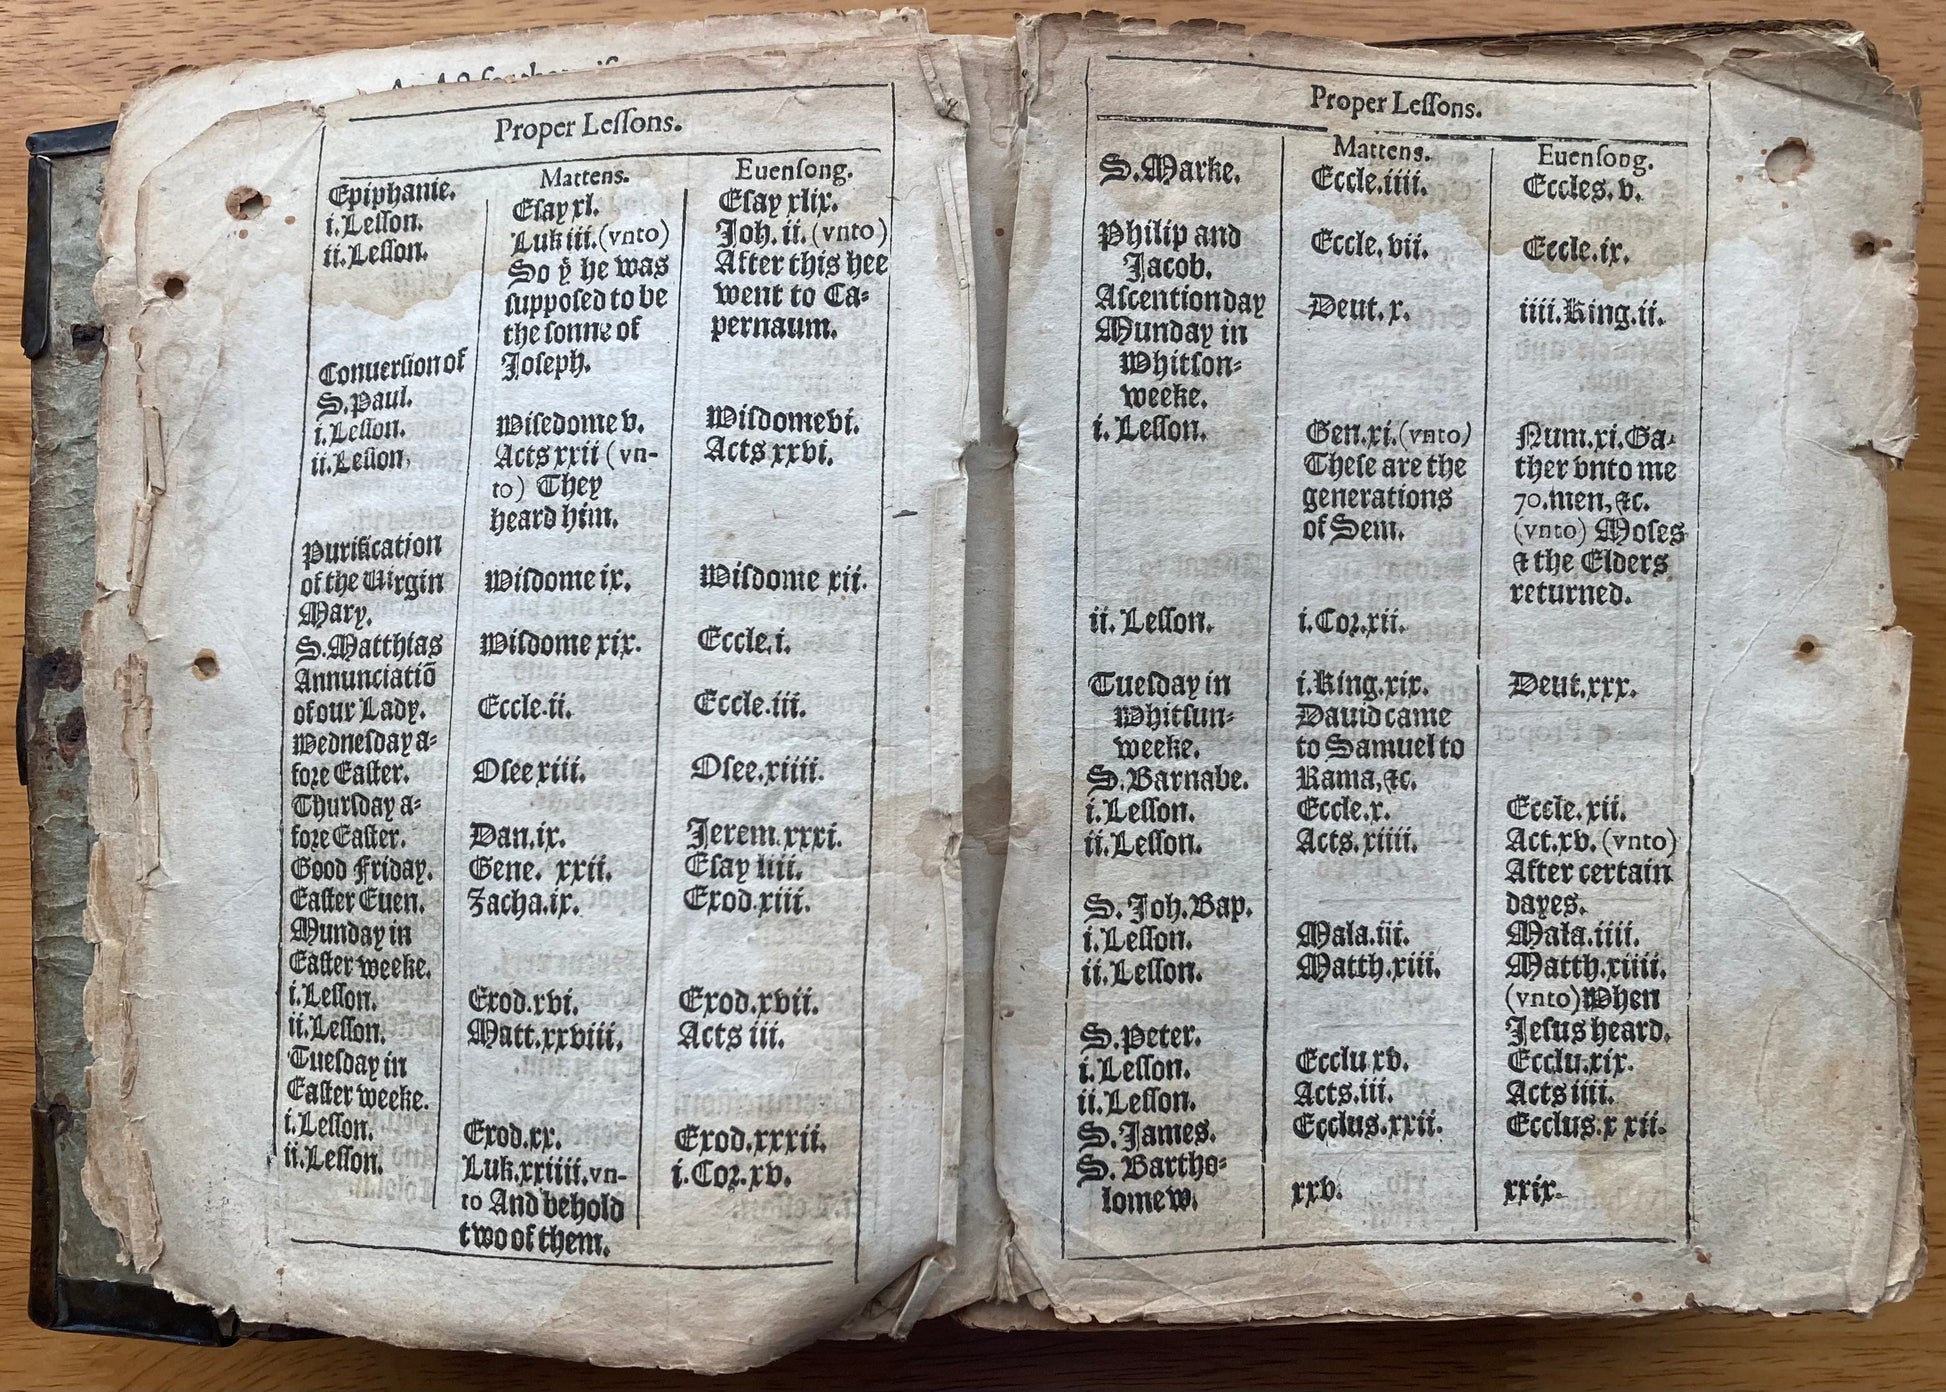 Proper Leſſons.
Mattens. Euenſong.
Epiphanie.
i. Leſſon. Eſay xl. Eſay xlix.
ii. Leſſon. Luk iii. (vnto) Joh. ii. (vnto)
So yͤ he was After this hee
ſuppoſed to be went to Ca-
the ſonne of pernaum.
Joſeph.
Conuerſion of
S. Paul.
i. Leſſon. Wiſedome v. Wiſdome vi.
ii. Leſſon, Acts xxii (vn- Acts xxvi.
to) They
heard him.
Purification
of the Virgin Wiſdome ix. Wiſdome xii.
Mary.
S. Matthias Wiſdome xix. Eccle. i.
Annunciatiō
of our Lady. Eccle. ii. Eccle. iii.
Wedneſday a-
fore Eaſter. Oſee xiii. Oſee. xiiii.
Thurſday a-
fore Eaſter. Dan. ix. Jerem. xxxi.
Good Friday. Gene. xxii. Eſay liii.
Eaſter Euen. Zacha. ix. Exod. xiii.
Munday in
Eaſter weeke.
i. Leſſon. Exod. xvi. Exod. xvii.
ii. Leſſon. Matt. xxviii. Acts iii.
Tueſday in
Eaſter weeke.
i. Leſſon. Exod. xx. Exod. xxxii.
ii. Leſſon. Luk. xxiiii. vn- i. Cor. xv.
to And behold
two of them.
Proper Leſſons.
Mattens. Euenſong.
S. Marke. Eccle. iiii. Eccles. v.
Philip and Eccle. vii. Eccle. ix.
Jacob.
Aſcention day Deut. x. iiii. King. ii.
Munday in
Whitſon-
weeke.
i. Leſſon. Gen. xi. (vnto) Num. xi. Ga-
Theſe are the ther vnto me
generations 70. men, &c.
of Sem. (vnto) Moſes
& the Elders
returned.
ii. Leſſon. i. Cor. xii.
Tueſday in i. King. xix. Deut. xxx.
Whitſun- Dauid came
weeke. to Samuel to
S. Barnabe. Rama, &c.
i. Leſſon. Eccle. x. Eccle. xii.
ii. Leſſon. Acts. xiiii. Act. xv. (vnto)
After certain
S. Joh. Bap. dayes.
i. Leſſon. Mala. iii. Mala. iiii.
ii. Leſſon. Matth. xiii. Matth. xiiii.
(vnto) When
S. Peter. Jeſus heard.
i. Leſſon. Ecclu xv. Ecclu. xix.
ii. Leſſon. Acts. iii. Acts iiii.
S. James. Ecclus. xxii. Ecclus. x xii.
S. Bartho-
lomew. xxv. xxix.